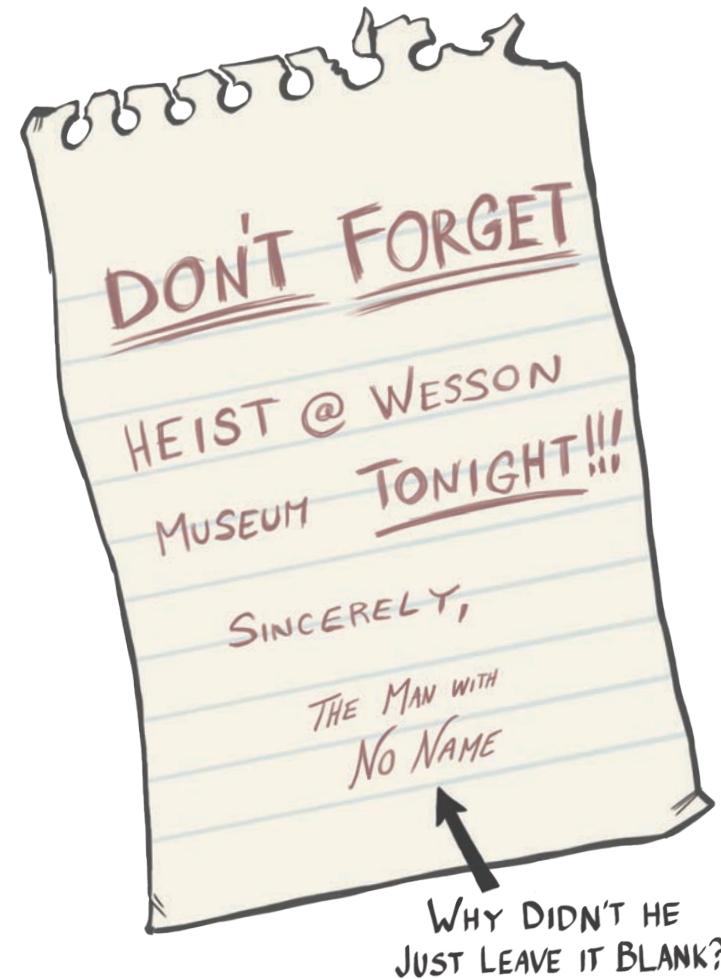 DON'T FORGET
HEIST @ WESSON
MUSEUM TONIGHT!!!
SINCERELY,
THE MAN WITH
NO NAME
WHY DIDN'T HE
JUST LEAVE IT BLANK?